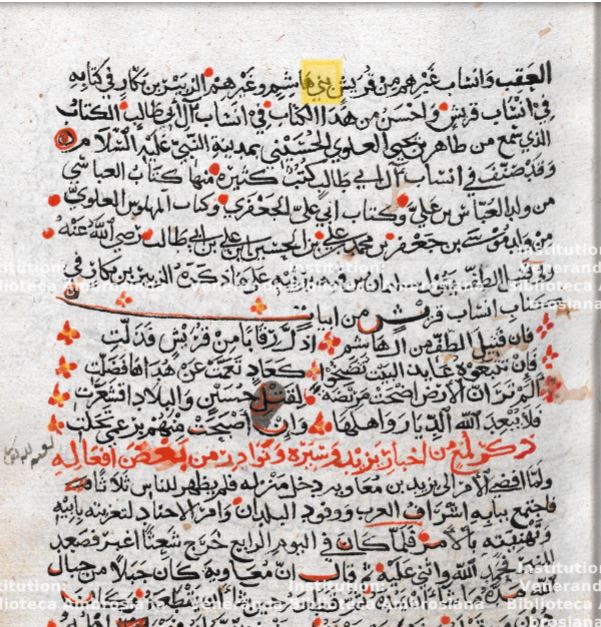 العقب وانساب غيرهم من قريش بني هاشم وغيرهم الزبير بن بكار في كتابه
في انساب قريش واحسن من هذا الكتاب في انساب آل ابي طالب الكتاب
الذي سمع من طاهر بن يحيى العلوي الحسيني بمدينة النبي عليه السلام
وقد صنف في انساب آل ابي طالب كتب كثيرة منها كتاب العباسي
من ولد العباس بن علي وكتاب ابي علي الجعفري وكتاب المهلوس العلوي
من ولد موسى بن جعفر بن محمد بن علي بن الحسين بن علي بن ابي طالب رضي الله عنه
يقول على ما ذكره الزبير بن بكار في
كتاب انساب قريش من ابيات
فان قتيل الطف من آل هاشم اذل رقابا من قريش فذلت
فان تتبعوه عايد البيت تصبحوا كعاد تعمت عن هداها فضلت
الم تر ان الارض اضحت مريضة لقتل حسين والبلاد اقشعرت
فلا يبعد الله الديار واهلها وان اصبحت منهم برغمي تخلت
ذكر لمع من اخبار يزيد وسيره ونوادر من بعض افعاله
ولما افضى الامر الى يزيد بن معاويه دخل منزله فلم يظهر للناس ثلاثا
فاجتمع ببابه اشراف العرب ووفود البلدان وامراء الاجناد لتعزيته بابيه
وتهنيته بالامر فلما كان في اليوم الرابع خرج شعثا اغبر فصعد
المنبر فحمد الله واثنى عليه ثم قال ان معاوية كان حبلا من حبال